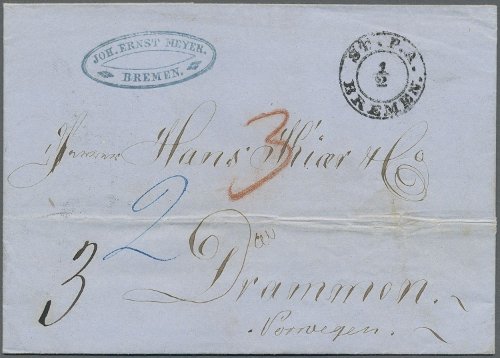 JOH. ERNST MEYER.
BREMEN.
ST. P. A.
1/2
BREMEN.
Herren Hans Kiær & Co
3
2
3
Drammen.
Norwegen.